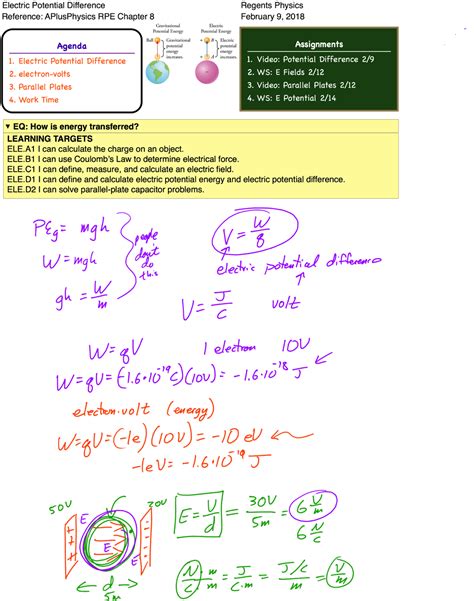 Electric Potential Difference
Reference: APlusPhysics RPE Chapter 8
Regents Physics
February 9, 2018
Gravitational Potential Energy
Electric Potential Energy
Ball
Gravitational potential energy increases.
B
A
Electric potential energy increases.
Agenda
1. Electric Potential Difference
2. electron-volts
3. Parallel Plates
4. Work Time
Assignments
1. Video: Potential Difference 2/9
2. WS: E Fields 2/12
3. Video: Parallel Plates 2/12
4. WS: E Potential 2/14
▼ EQ: How is energy transferred?
LEARNING TARGETS
ELE.A1 I can calculate the charge on an object.
ELE.B1 I can use Coulomb's Law to determine electrical force.
ELE.C1 I can define, measure, and calculate an electric field.
ELE.D1 I can define and calculate electric potential energy and electric potential difference.
ELE.D2 I can solve parallel-plate capacitor problems.
PEg = mgh
W = mgh
gh = W/m
people don't do this
V = W/q
electric potential difference
V = J/C volt
W = qV 1 electron 10V
W = qV = (-1.6·10⁻¹⁹C)(10V) = -1.6·10⁻¹⁸ J
electron·volt (energy)
W = qV = (-1e)(10V) = -10 eV
-1eV = -1.6·10⁻¹⁹ J
50V 20V
E
E
d
5m
E = V/d = 30V/5m = 6 V/m
6 N/C
N/C · m/m = J/C·m = J/C/m = V/m